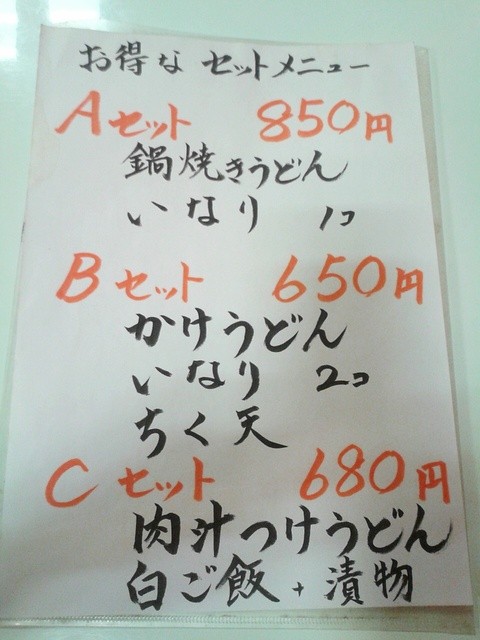 お得な セットメニュー
Aセット 850円
鍋焼きうどん
いなり 1コ
Bセット 650円
かけうどん
いなり 2コ
ちく天
Cセット 680円
肉汁つけうどん
白ご飯+漬物